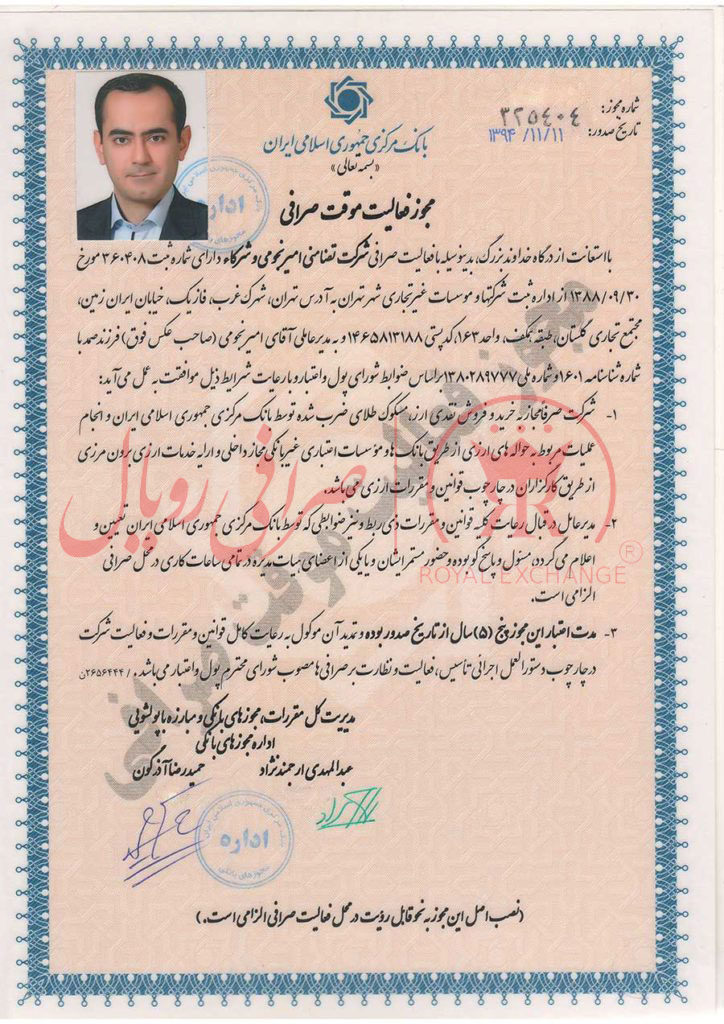 شماره مجوز: ۳۲۵۴۰۴
تاریخ صدور: ۱۳۹۴/۱۱/۱۱
بانک مرکزی جمهوری اسلامی ایران
«بسمه تعالی»
مجوز فعالیت موقت صرافی
با استعانت از درگاه خداوند بزرگ، بدینوسیله با فعالیت صرافی شرکت تضامنی امیر نجومی و شرکاء دارای شماره ثبت ۳۶۰۴۰۸ مورخ
۱۳۸۸/۰۹/۳۰ از اداره ثبت شرکتها و مؤسسات غیرتجاری شهر تهران به آدرس تهران، شهرک غرب، فاز یک، خیابان ایران زمین،
مجتمع تجاری گلستان، طبقه همکف، واحد ۱۶۳، کدپستی ۱۴۶۵۸۱۳۱۸۸ و به مدیرعاملی آقای امیر نجومی (صاحب عکس فوق) فرزند صمد با
شماره شناسنامه ۱۶۰۱ و شماره ملی ۱۳۸۰۲۸۹۷۷۷ براساس ضوابط شورای پول و اعتبار و با رعایت شرایط ذیل موافقت به عمل می‌آید:
۱- شرکت صرفا مجاز به خرید و فروش نقدی ارز، مسکوک طلای ضرب شده توسط بانک مرکزی جمهوری اسلامی ایران و انجام
عملیات مربوط به حواله های ارزی از طریق بانک ها و مؤسسات اعتباری غیربانکی مجاز داخلی و ارایه خدمات ارزی برون مرزی
از طریق کارگزاران در چارچوب قوانین و مقررات ارزی می‌باشد.
۲- مدیرعامل در قبال رعایت کلیه قوانین و مقررات ذی ربط و سایر ضوابطی که توسط بانک مرکزی جمهوری اسلامی ایران تعیین و
اعلام می گردد، مسئول و پاسخ گو بوده و حضور مستمر ایشان و یا یکی از اعضای هیات مدیره در تمامی ساعات کاری در محل صرافی
الزامی است.
۳- مدت اعتبار این مجوز پنج (۵) سال از تاریخ صدور بوده و تمدید آن موکول به رعایت کامل قوانین و مقررات و فعالیت شرکت
در چارچوب دستورالعمل اجرائی تأسیس، فعالیت و نظارت بر صرافی ها مصوب شورای محترم پول و اعتبار می باشد. /۲۶۵۶۴۴۴ن
مدیریت کل مقررات، مجوزهای بانکی و مبارزه با پولشویی
اداره مجوزهای بانکی
عبدالمهدی ارجمندنژاد
حمیدرضا آذرگون
(نصب اصل این مجوز به نحو قابل رؤیت در محل فعالیت صرافی الزامی است.)
صرافی رویال
ROYAL EXCHANGE ®
مجوز فعالیت موقت صرافی
اداره
مجوزهای بانکی